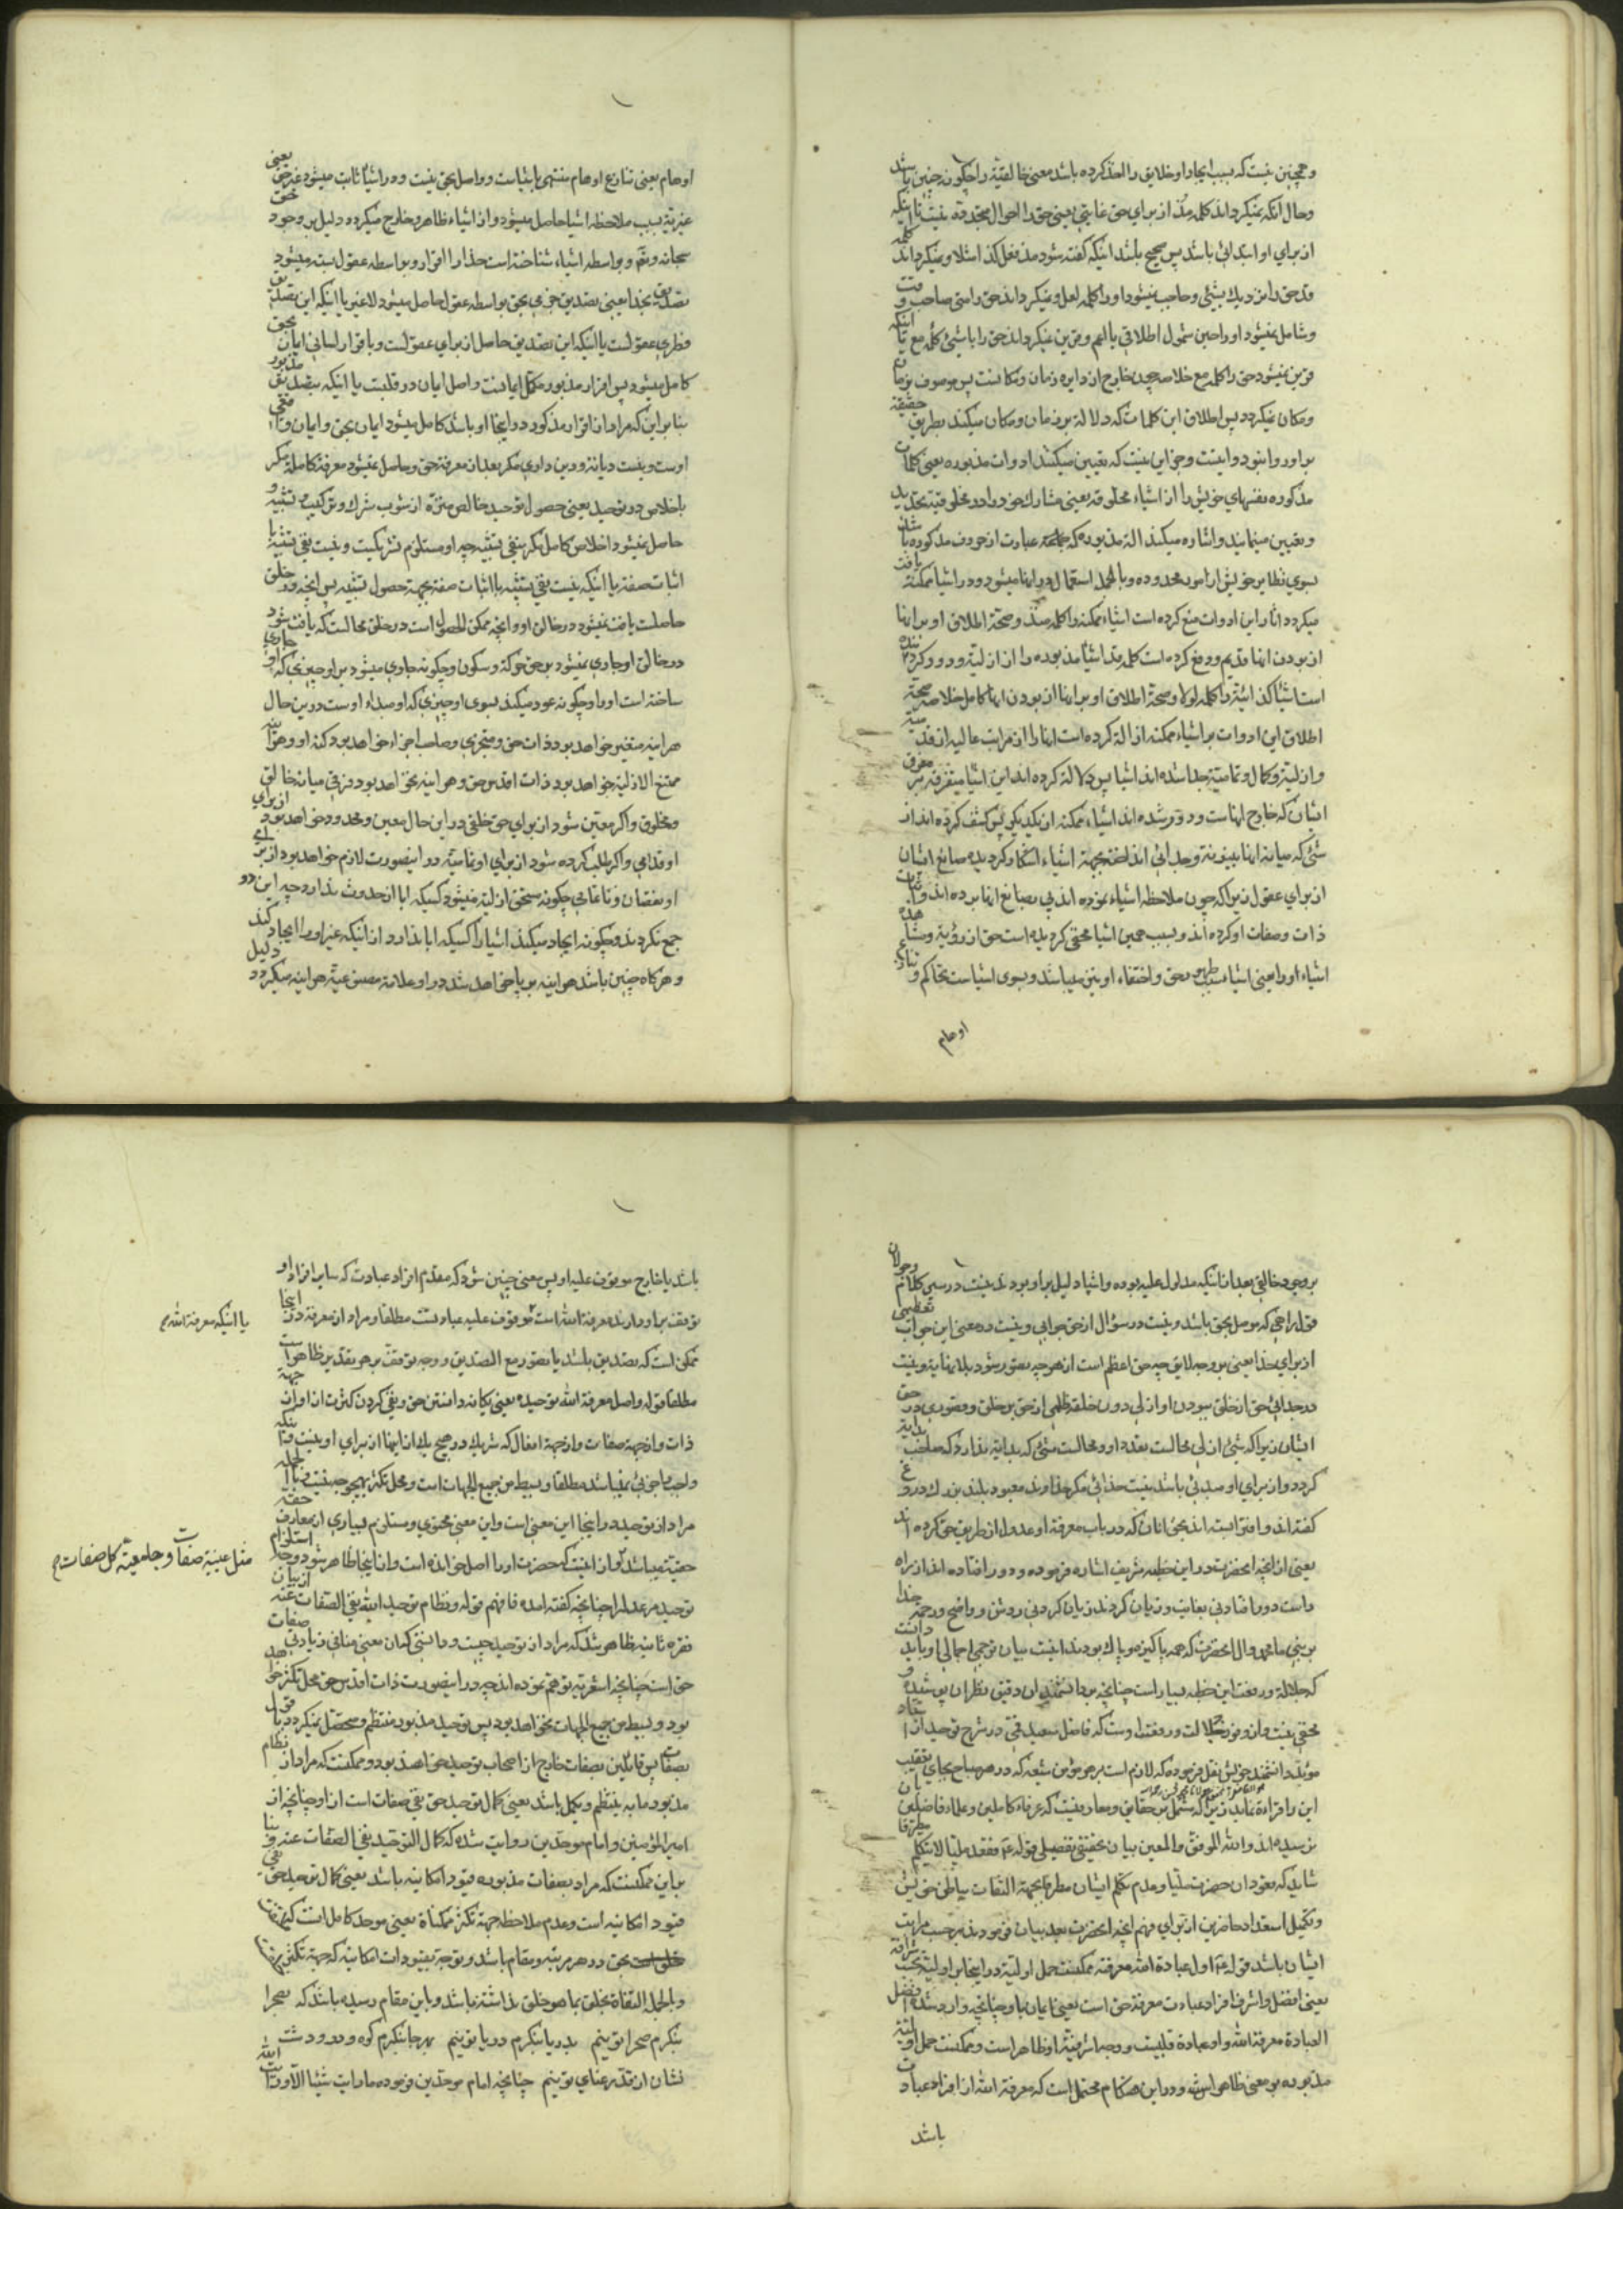 و همچنین نیست که بسبب ایجاد او خلایق را اخذ کرده باشد معنی خالقیة را چکونه چنین باشد
وحال آنکه نمیکرداند کلمه مذ از برای حق غایتی یعنی حق را احوال متجدده نیست تا اینکه
از برای او ابتدائی باشد پس صحیح باشد اینکه کفته شود مذ فعل کذا مثلا و نمیکرداند کلمه
قد حق را نزدیک بشیئی و حاجب نمیشود او را کلمه لعل و نمیکرداند حق را متی صاحب وقت
و شامل نمیشود او را حین شمول اطلاقی یا الهم و قرین نمیکرداند حق را با شیئی کلمه مع تا اینکه
قرین نمیشود حق را کلمه مع خلاصه چون خارج از دایره زمان و مکانست پس موصوف بزمان
و مکان نمیکردد پس اطلاق این کلمات که دلالة بر زمان و مکان میکند بطریق حقیقة
بر او روا نبود و اینست و جز این نیست که تعیین میکنند ادوات مذبوره یعنی کلمات
مذکوره نفسهای خویش را از اشیاء مخلوقه یعنی مشارک خود را در مخلوقیة تحدید
و تعیین مینمایند و اشاره میکند الة مذبوره که عبارت از حروف مذکوره باشد
بسوی نظایر خویش از امور محدوده و بالجمله استعمال در اینها میشود و در اشیاء ممکنه یافت
میکردد آثار این ادوات منع کرده است اشیاء ممکنه را کلمه منذ و صحة اطلاق او بر اینها
از بودن اینها قدیم و دفع کرده است کلمه قد اشیاء مذبوره را از ازلیة و دور کرداننده
است اشیا کذائیة را کلمه لولا و صحة اطلاق او بر اینها از بودن اینها کامل خلاصه صحة
اطلاق این ادوات بر اشیاء ممکنه ازالة کرده است اینها را از مراتب عالیه از قدمیة
و ازلیة و کمال و تمامیة جدا شده اند اشیا پس دلالة کرده اند این اشیا متفرقه بر مفرق
ایشان که خارج اینهاست و دور شده اند اشیاء ممکنه از یکدیکر پس کشف کرده اند از
شئی که میانه اینها بینونة و جدائی انداخته بجهة اشیاء اشکار کردیده صانع ایشان
از برای عقول زیرا که چون ملاحظه اشیاء نموده اند پی بصانع اینها برده اند و اثبات
ذات و صفات او کرده اند و بسبب همین اشیا مختفی کردیده است حق از رؤیة و مشاهده
اشیاء او را یعنی اشیاء سبب ظهور حق و اختفاء او نیز میباشند و بسوی اشیاست تحاکم و تنازع
اوهام
اوهام یعنی تنازع اوهام منتهی باشیاست و واصل بحق نیست و در اشیا ثابت میشود غیر حق یعنی
غیریة بسبب ملاحظه اشیا حاصل میشود و از اشیاء ظاهر و خارج میکردد دلیل بر وجود حق
سبحانه و تعه و بواسطه اشیاء شناخته است خدا را اقرار و بواسطه عقول بسته میشود
تصدیق بخدا یعنی تصدیق جزمی بحق بواسطه عقول حاصل میشود لاغیر یا اینکه این تصدیق
فطری عقولست یا اینکه این تصدیق حاصل از برای عقولست و باقرار لسانی ایمان بحق
کامل میشود پس اقرار مذبور مکمل ایمانست و اصل ایمان در قلبست یا اینکه بتصدیق مذبور
بنا بر این که مراد از اقرار مذکور در اینجا او باشد کامل میشود ایمان بحق و ایمان واقعی
اوست و نیست دیانة و دین داری مکر بعد از معرفة حق و حاصل نمیشود معرفة کامله مکر
باخلاص در توحید یعنی حصول توحید خالص منزه از شوب شرک و ترکیب و تشبیه
حاصل نمیشود اخلاص کامل مکر بنفی تشبیه چه او مستلزم تشریکست و نیست نفی تشبیه با
اثبات صفة یا اینکه نیست نفی تشبیه با اثبات صفة بجهة حصول تشبیه پس انچه در خلق
حاصلست یافت نمیشود در خالق او و انچه ممکن الحصول است در خلق محالست که یافت شود
در خالق او جاری نمیشود بر حق حرکة و سکون و چکونه جاری میشود بر او چیزی که او جاری
ساخته است او را و چکونه عود میکند بسوی او چیزی که او مبداء اوست در این حال
هراینه متغیر خواهد بود ذات حق و متجزی و صاحب اجزاء خواهد بود کنه او و هراینه
ممتنع الازلیة خواهد بود ذات اقدس حق و هراینه نخواهد بود فرقی میانه خالق
و مخلوق و اکر معین شود از برای حق خلفی در این حال معین و محدود خواهد بود از برای
او قدامی و اکر طلب کرده شود از برای او تمامیة در اینصورت لازم خواهد بود از برای
او نقصان و ناتمامی چکونه مستحق ازلیة میشود کسیکه ابا از حدوث ندارد چه این دو
جمع نکردند و چکونه ایجاد میکند اشیا را کسیکه ابا ندارد از اینکه غیر او را ایجاد کند
و هرکاه چنین باشد هراینه بر پا خواهد شد در او علامة مصنوعیة هراینه میکردد دلیل
بر وجود خالقی بعد از اینکه مدلول علیه بوده و اشیا دلیل بر او بودند نیست در سیر کلام و جولان
قول راهی که موصل بحق باشد و نیست در سؤال از حق جوابی و نیست در معنی این جواب تعظیمی
از برای خدا یعنی بر وجه لایق چه حق اعظم است از هر چه تصور شود بلا نهایة و نیست
در جدائی حق از خلق ببودن او ازلی دون خلقه ظلمی از حق بر خلق و قصوری در حق
ایشان زیرا که شئ ازلی محالست تعدد او و محالست شئی که بدایة ندارد که صاحب بدایة
کردد و از برای او مبدئی باشد نیست خدائی مکر خداوند معبود بلند بزرک دروغ
کفته اند و افترا بسته اند بحق انان که در باب معرفة او عدول از طریق حق کرده اند
یعنی از انچه انحضرت در این خطبه شریف اشاره فرموده و دور افتاده اند از راه
راست دور افتادنی بغایت و زیان کردند زیان کردنی روشن و واضح و رحمة خدا
بر نبی ما محمد و ال انحضرت که همه پاکیزه و پاک بودند اینست بیان ترجمهٔ اجمالی او باید دانست
که جلالة و رفعت این خطبه بسیار است چنانچه بر دانشمندان دقیق نظران پوشیده و
مخفی نیست و از وفور جلالت و رفعت اوست که فاضل سعید قمی در شرح توحید از استاد
مؤید دانشمند خویش نقل فرموده که لازم است بر هر مؤمن شیعه که در هر صباح بجای تعقیب
این را قراءة نماید زیرا که مشتمل بر حقایق و معارفیست که عرفاء کاملین و علماء فاضلین بآن
نرسیده اند و الله الموفق و المعین بیان تحقیقی تفصیلی قوله ع فقعد ملیا لایتکلم مطرقا
شاید که قعود ان حضرت ملیا و عدم تکلم ایشان مطرقا بجهة التفات بباطن خویش
و تکمیل استعداد حاضرین از برای فهم انچه انحضرت بعد بیان فرمودند بر حسب مراتب
ایشان باشد قوله ع اول عبادة الله معرفته ممکنست حمل اولیة در اینجا بر اولیة بحسب شرافة
یعنی افضل و اشرف افراد عبادت معرفة حق است یعنی ایمان باو چنانچه وارد شده افضل
العبادة معرفة الله و او عبادة قلبیست و وجه اشرفیة او ظاهر است و ممکنست حمل اولیة
مذبوره بر معنی ظاهر او و در این هنکام محتمل است که معرفة الله از افراد عبادت
باشد
باشد یا خارج موقوف علیه او پس معنی چنین شود که مقدم افراد عبادت که سایر افراد او
توقف بر او دارند معرفة الله است موقوف علیه عبادتست مطلقا و مراد از معرفة در اینجا
یا اینکه معرفة الله
ممکن است که تصدیق باشد یا تصور مع التصدیق و وجه توقف بر هر تقدیر ظاهر است
مطلقا قوله و اصل معرفة الله توحیده یعنی یکانه دانستن حق و نفی کردن کثرت از او از جهة
ذات و از جهة صفات و از جهة افعال که شریک در هیچ یک از اینها از برای او نیست
واجب با جزئی نمیباشد مطلقا و بسیط من جمیع الجهات است و محل تکثر بهیچ وجه نیست و بالجمله
مراد از توحیده در اینجا این معنی است و این معنی محتوی و مستلزم بسیاری از معارف حقه
حقیقیه میباشد و از اینست که حضرت او را اصل خوانده است و از اینجا ظاهر شود وجه استلزام
مثل عینیة صفات و جامعیة کل صفات
توحید مر عدل را چنانچه کفته امده فافهم قوله و نظام توحید الله نفی الصفات عنه از بیان
فقره ثانیه ظاهر شد که مراد از توحید چیست و دانستی که ان معنی منافی زیادتی صفات
حق است چنانچه اشعریه توهم نموده اند چه در اینصورت ذات اقدس حق محل تکثر خواهد
بود و بسیط من جمیع الجهات نخواهد بود پس توحید مذبور منتظم و متحصل نمیکردد با قول
بصفات پس قائلین بصفات خارج از اصحاب توحید خواهند بود و ممکنست که مراد از نظام
مذبور ما به ینتظم و یکمل باشد یعنی کمال توحید حق نفی صفات است از او چنانچه از
امیر المؤمنین و امام موحدین روایت شده که کمال التوحید نفی الصفات عنه و بنا
بر این ممکنست که مراد بصفات مذبوره قیود امکانیه باشد یعنی کمال توحید حق نفی
قیود امکانیه است و عدم ملاحظه جهة تکثر ممکناة یعنی موحد کامل انست که
بحق در هر مرتبه و مقام باشد و توجه بقیودات امکانیه که جهة تکثر
و بالجمله التفاة بخلق بما هو خلق نداشته باشد و باین مقام رسیده باشد که بصحرا
بنکرم صحرا تو بینم بدریا بنکرم دریا تو بینم بهر جا بنکرم کوه و در و دشت
نشان از قد رعنای تو بینم چنانچه امام موحدین فرموده ما رایت شیئا الا و رایت الله